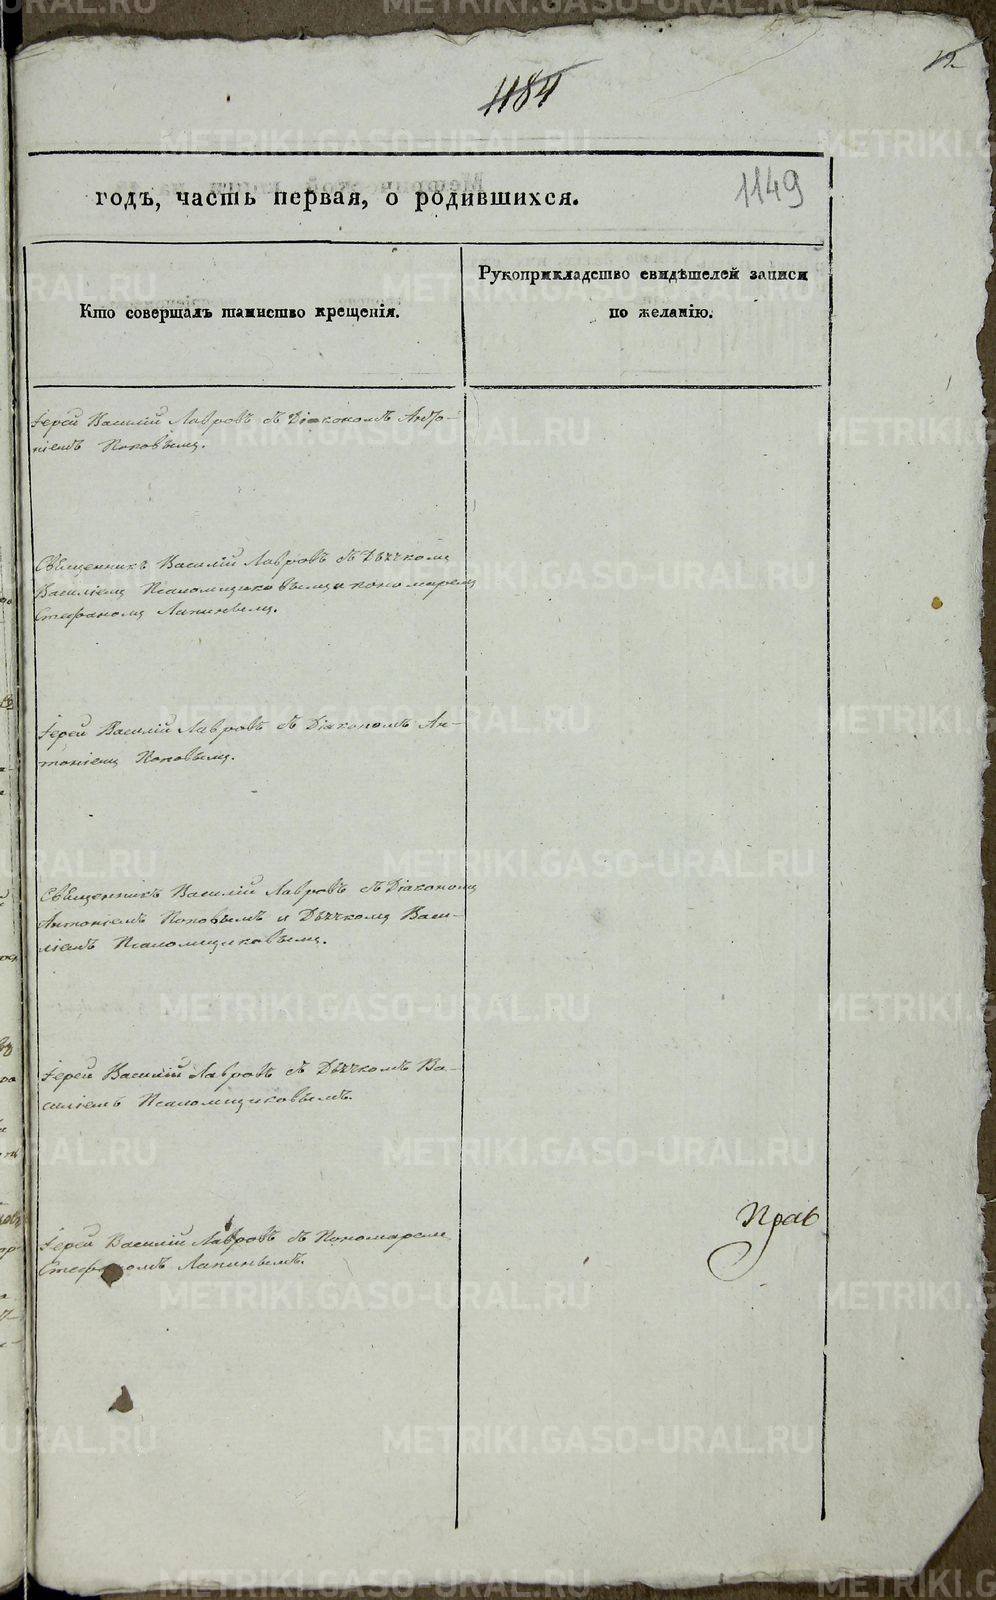 1184
12
1149
годъ, часть первая, о родившихся.
Кто совершалъ таинство крещенія.
Рукоприкладство свидѣтелей записи
по желанію.
Іерей Василій Лавровъ съ Діакономъ Анто-
ніемъ Поповымъ.
Священникъ Василій Лавровъ съ Дьячкомъ
Василіемъ Псаломщиковымъ и пономаремъ
Стефаномъ Лапинымъ.
Іерей Василій Лавровъ съ Діакономъ Ан-
тоніемъ Поповымъ.
Священникъ Василій Лавровъ съ Діакономъ
Антоніемъ Поповымъ и Дьячкомъ Васи-
ліемъ Псаломщиковымъ.
Іерей Василій Лавровъ съ Дьячкомъ Ва-
силіемъ Псаломщиковымъ.
Прав
Іерей Василій Лавровъ съ Пономаремъ
Стефаномъ Лапинымъ.
METRIKI.GASO-URAL.RU